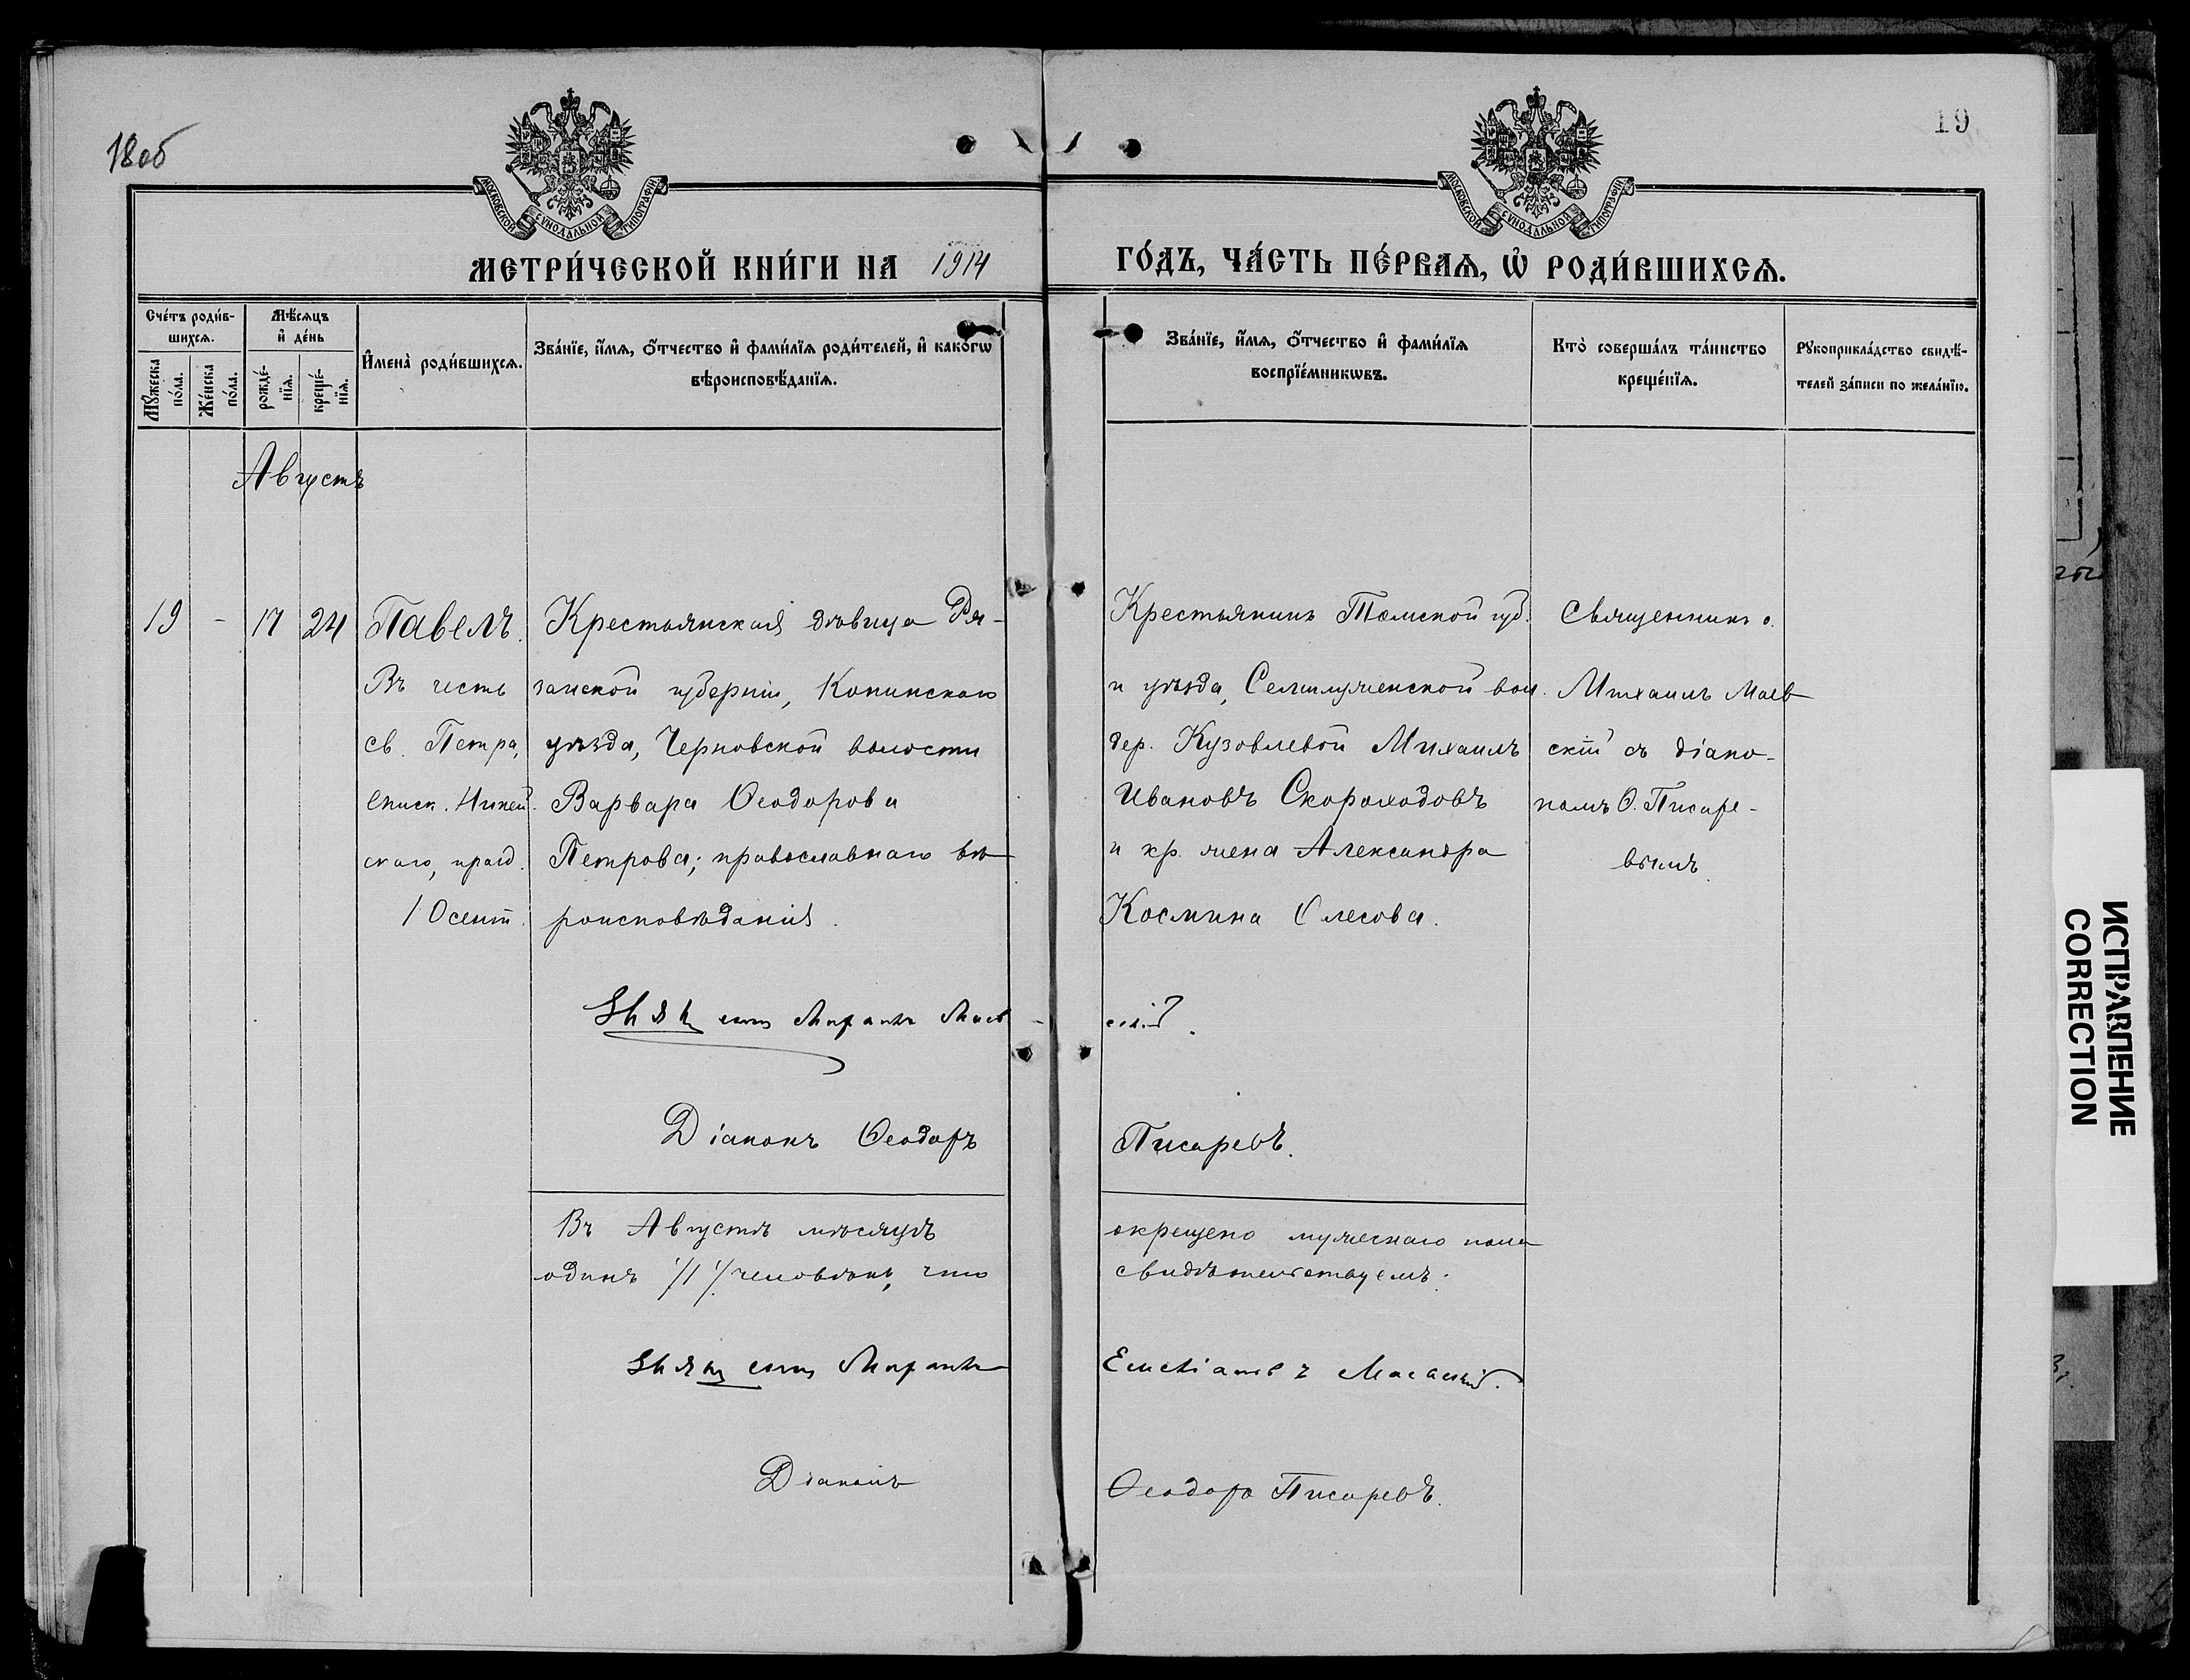 18об
19
МОСКОВСКОЙ СѴНОДАЛЬНОЙ ТИПОГРАФІИ
МОСКОВСКОЙ СѴНОДАЛЬНОЙ ТИПОГРАФІИ
МЕТРИ́ЧЕСКОЙ КНИ́ГИ НА 1914
ГО́ДЪ, ЧА́СТЬ ПЕ́РВАѦ, Ѽ РОДИ́ВШИХСѦ.
Сче́тъ роди́в-
шихсѧ.
Мꙋ́жеска
по́ла.
Же́нска
по́ла.
Мѣ́сѧцъ
и҆ де́нь
рожде́-
нїѧ.
креще́-
нїѧ.
И҆мена̀ роди́вшихсѧ.
Зва́нїе, и҆́мѧ, ѻ҆́тчество и҆ фами́лїѧ роди́телей, и҆ како́гѡ
вѣроисповѣ́данїѧ.
Зва́нїе, и҆́мѧ, ѻ҆́тчество и҆ фами́лїѧ
воспрїе́мникѡвъ.
Кто̀ соверша́лъ та́инство
креще́нїѧ.
Рꙋкоприкла́дство свидѣ́-
телей за́писи по жела́нїю.
Августъ
19 - 17 24 Павелъ.
Въ честь
св. Петра,
еписк. Никей-
скаго, празд.
10 сент.
Крестьянская дѣвица Ря-
занской губерніи,
уѣзда, Черновской волости
Варвара Ѳеодорова
Петрова; православнаго вѣ-
роисповѣданія.
Крестьянинъ Томской губ.
и уѣзда, Семилуженской вол.
дер. Кузовлевой Михаилъ
Ивановъ Скороходовъ
и кр. жена Александра
Космина
Священникъ о.
Михаилъ Маев
скій съ діако-
номъ Ѳ. Писаре-
вымъ.
Михаилъ Маев-
скій.
Діаконъ Ѳеодоръ Писаревъ.
Въ Августѣ мѣсяцѣ окрещено мужескаго пола
одинъ /1/ человѣкъ, что свидѣтельствуемъ.
Михаилъ Маевскій.
Діаконъ Ѳеодоръ Писаревъ.
ИСПРАВЛЕНИЕ
CORRECTION